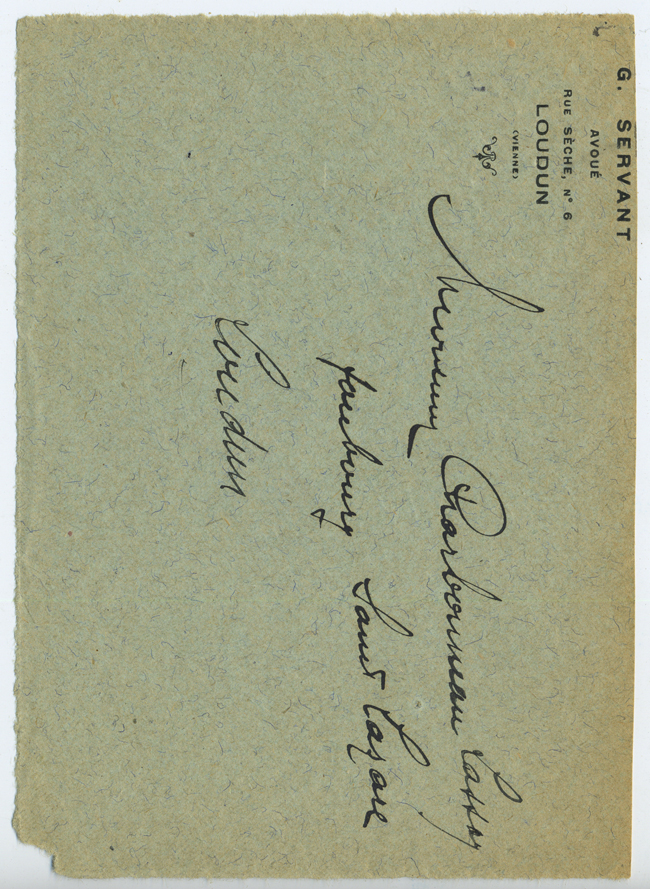 G. SERVANT
AVOUÉ
RUE SÈCHE, N° 6
LOUDUN
(VIENNE)
Monsieur Charbonneau Lassay
faubourg Saint Lazare
Loudun